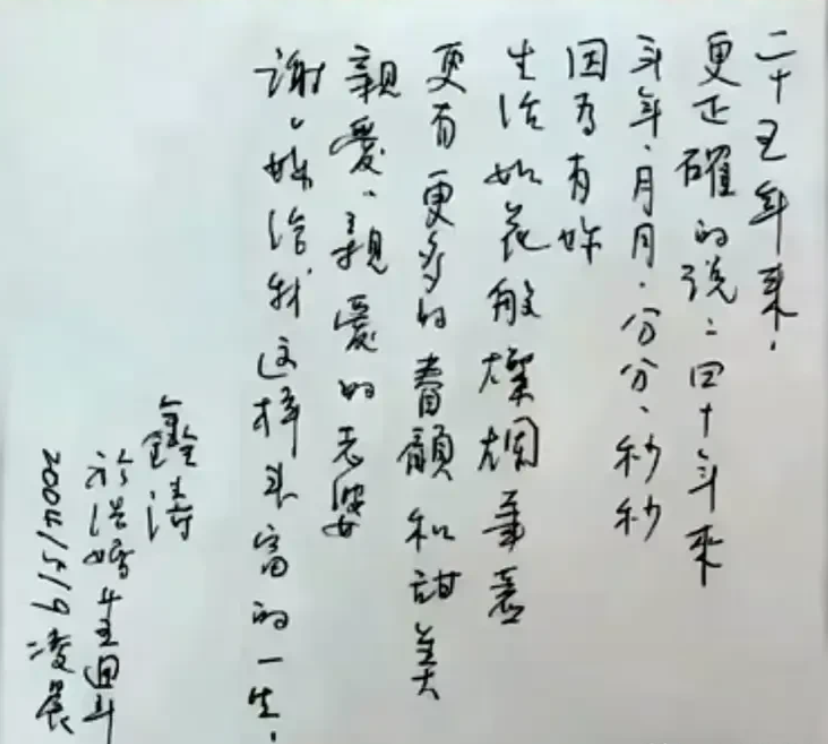 二十五年來，
更正確的說：四十年來
年年、月月、分分、秒秒
因為有妳
生活如花般燦爛
更有更多的眷顧和甜美
親愛、親愛的老婆
謝々妳給我这样丰富的一生，
鑫涛
於結婚廿五週年
2004/5/9 凌晨